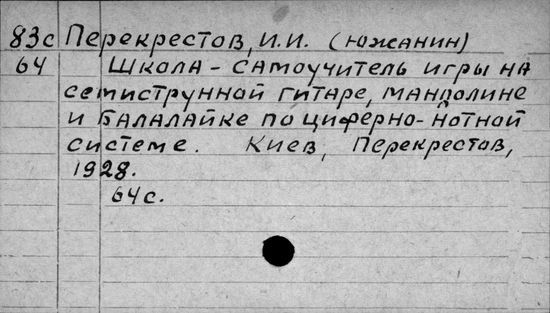 83с Перекрестов, И.И. (Южанин)
64 Школа - самоучитель игры на
семиструнной гитаре, мандолине
и балалайке по циферно-нотной
системе. Киев, Перекрестов,
1928.
64с.